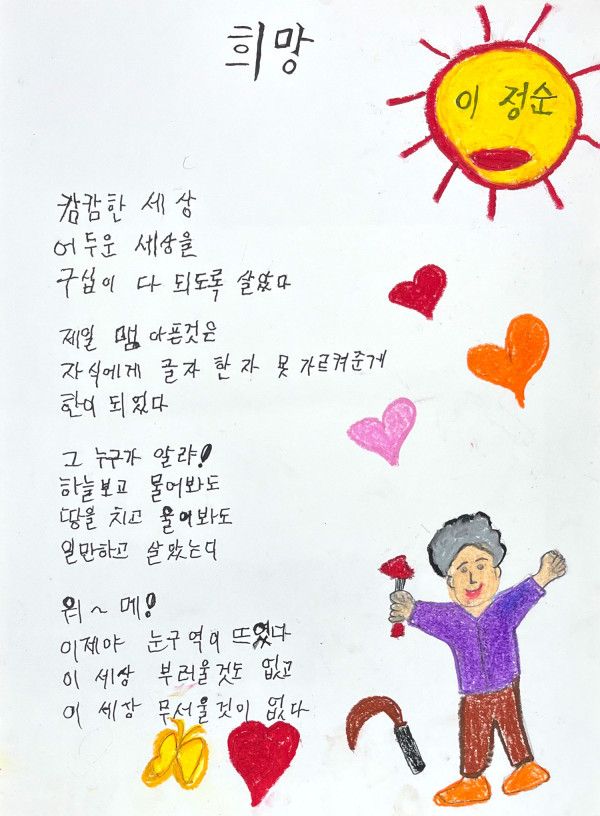 희망
이 정순
캄캄한 세상
어두운 세상을
구십이 다 되도록 살았다
제일 맴 아픈것은
자식에게 글자 한 자 못 가르켜준게
한이 되었다
그 누구가 알랴!
하늘보고 물어봐도
땅을 치고 울어봐도
일만하고 살았는디
워~메!
이제야 눈구역이 뜨였다
이 세상 부러울것도 없고
이 세상 무서울것이 없다